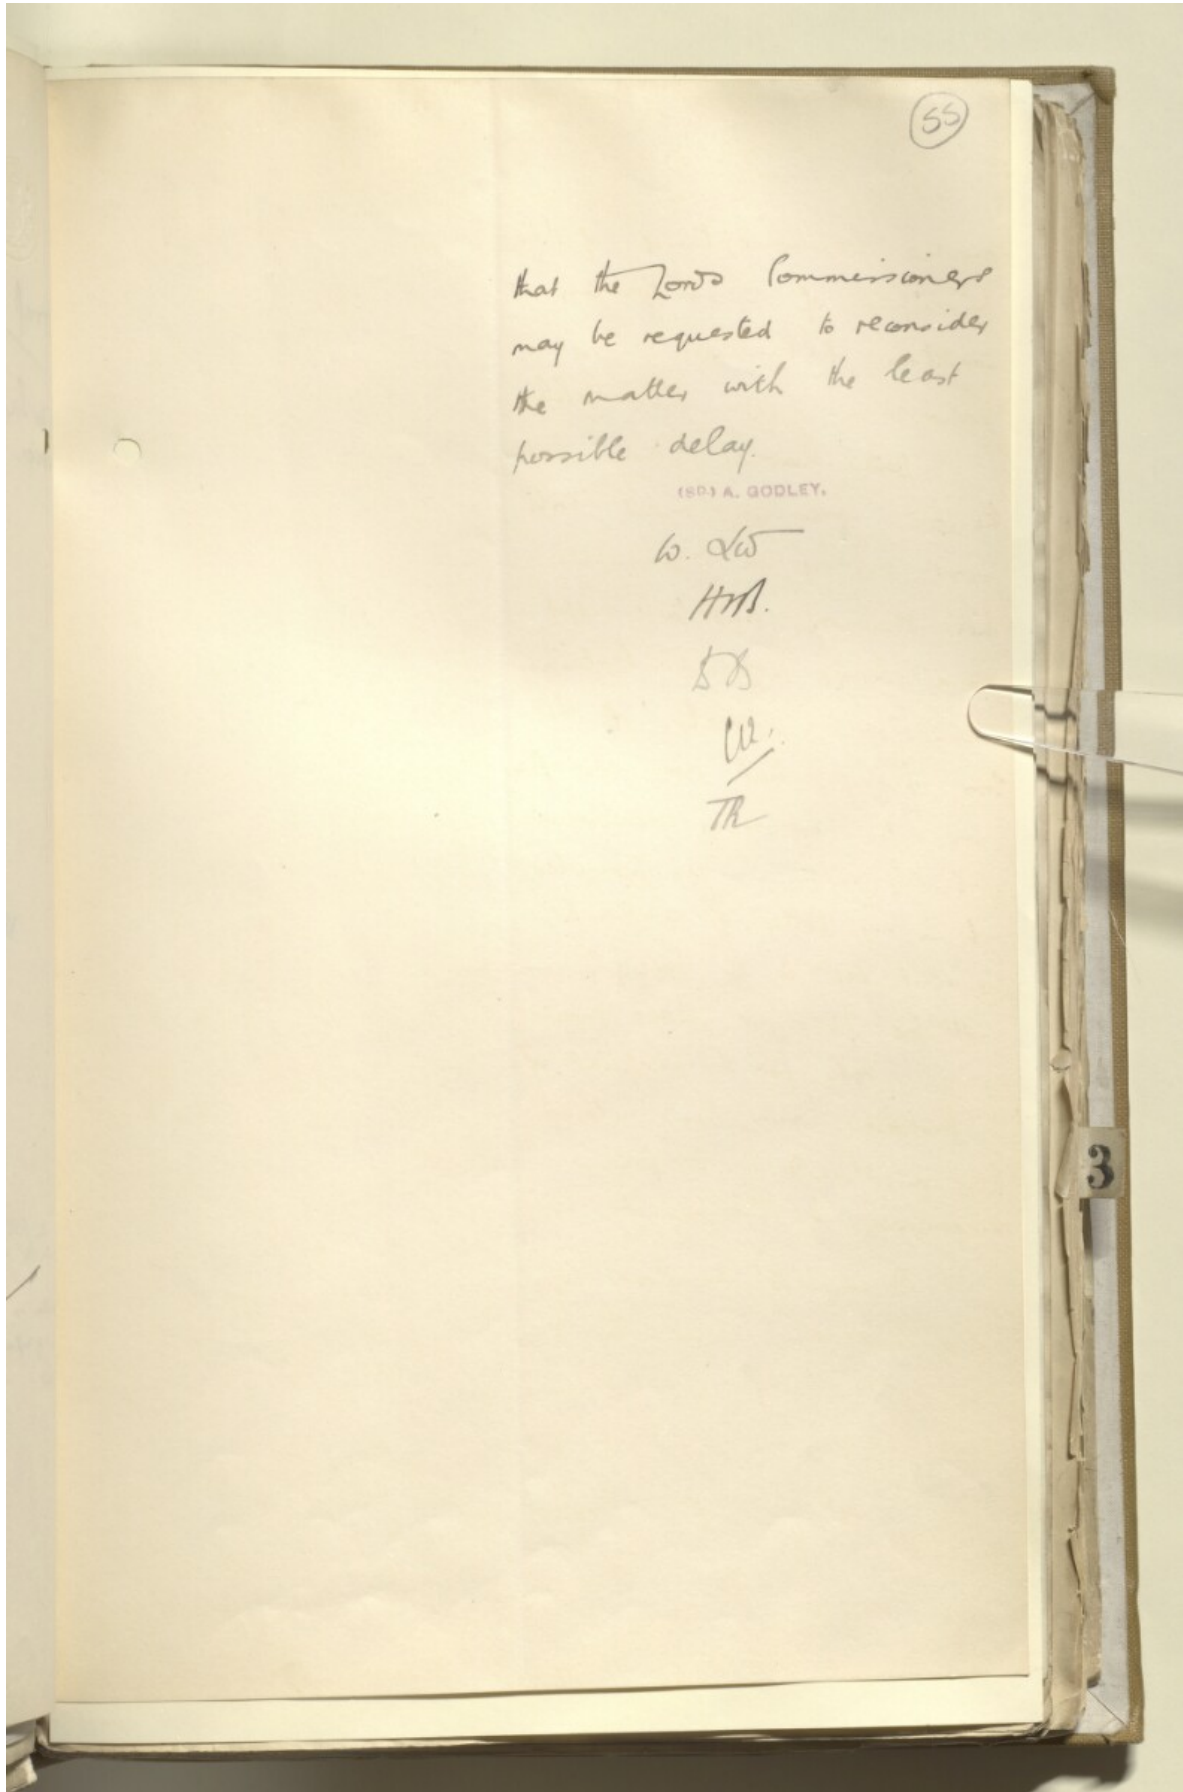 55
that the Lords Commissioners
may be requested to reconsider
the matter with the least
possible delay.
(SD.) A. GODLEY.
W. LW
HMB.
TR
3